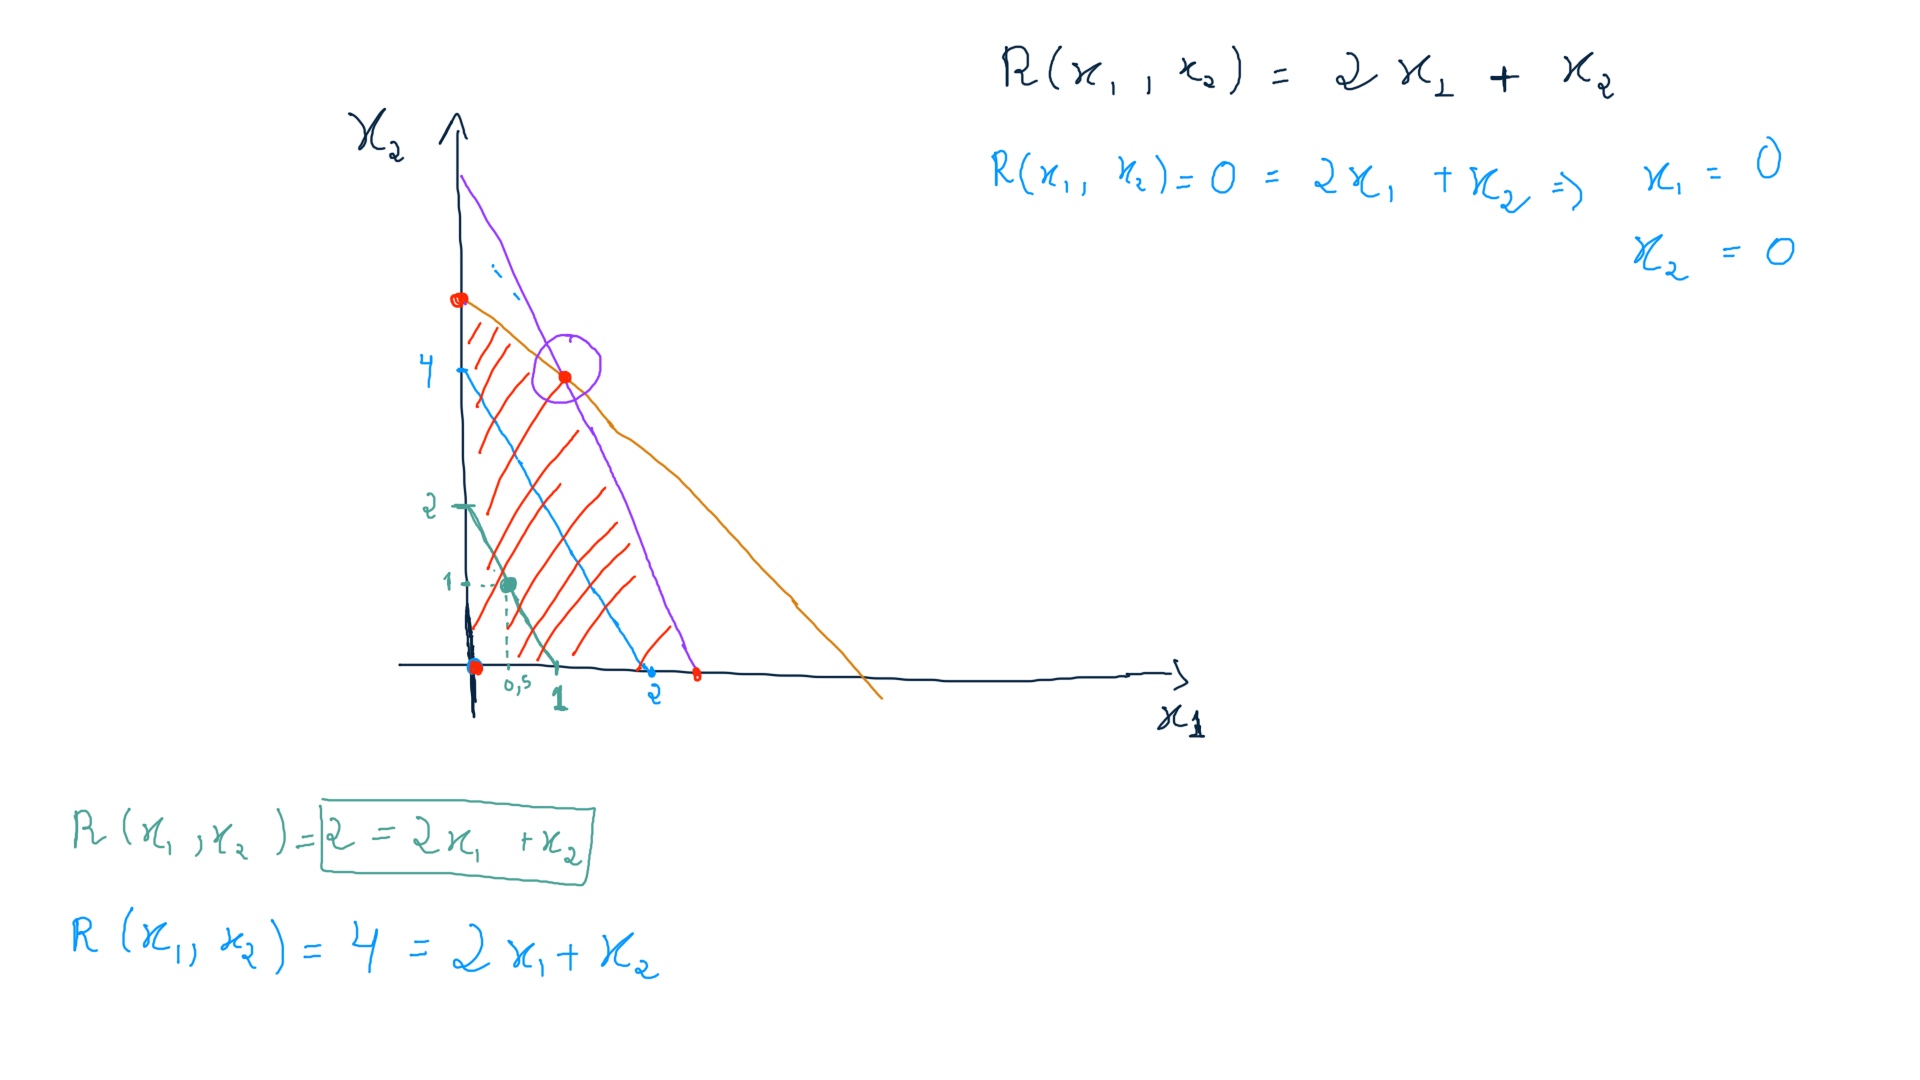 R(x₁, x₂) = 2x₁ + x₂
R(x₁, x₂) = 0 = 2x₁ + x₂ ⇒ x₁ = 0
x₂ = 0
x₂
4
2
1
0,5
1
2
x₁
R(x₁, x₂) = 2 = 2x₁ + x₂
R(x₁, x₂) = 4 = 2x₁ + x₂